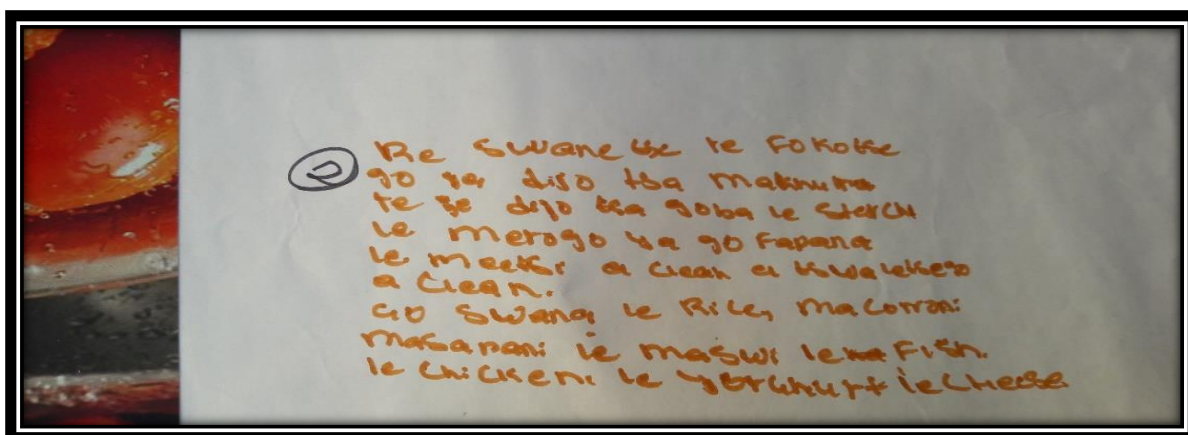 ②
Re swanetse re fokotse
go ja dijo tsa makhura
re je dijo tsa goba le sterch
le merogo ya go fapana
le meetsi a clean a
a clean.
Go swana le Rice, macorroni
masapani le maswi le Fish.
le chicken. le yorghurt le cheese